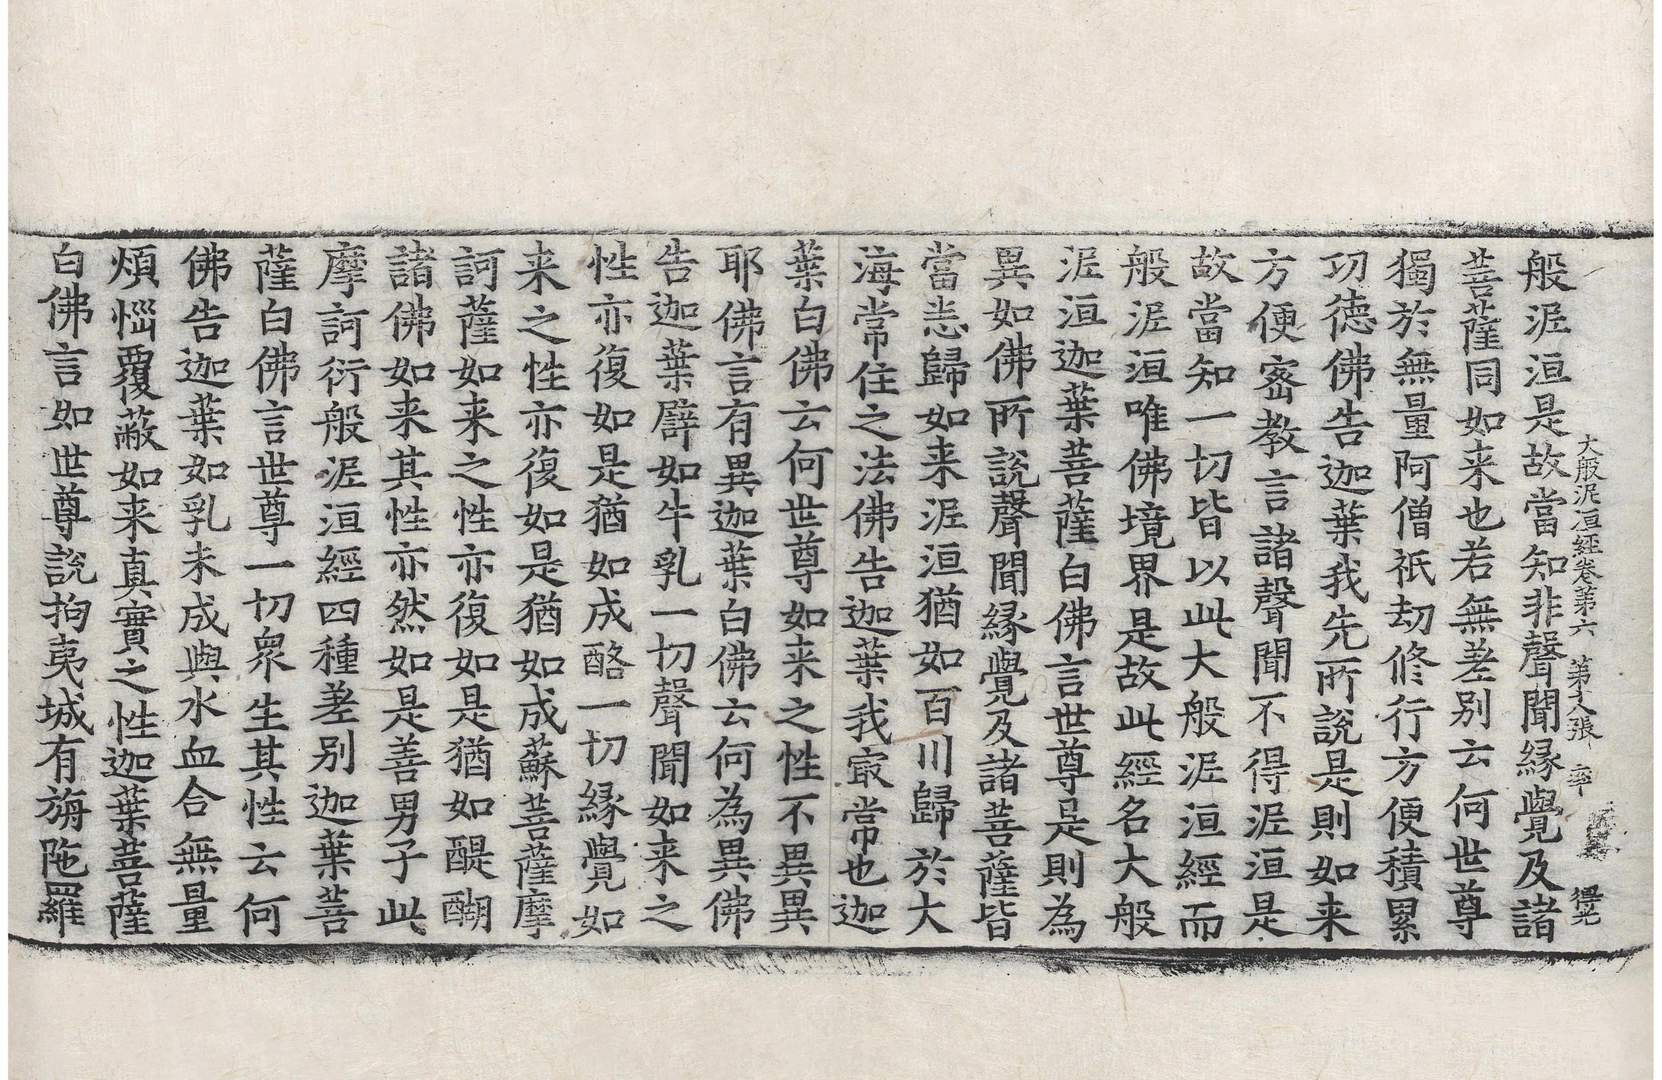 大般泥洹經卷第六 第十八張 率 得光
般泥洹是故當知非聲聞緣覺及諸
菩薩同如来也若無差別云何世尊
獨於無量阿僧祇劫修行方便積累
功德佛告迦葉我先所說是則如来
方便密教言諸聲聞不得泥洹是
故當知一切皆以此大般泥洹經而
般泥洹唯佛境界是故此經名大般
泥洹迦葉菩薩白佛言世尊是則為
異如佛所說聲聞緣覺及諸菩薩皆
當悉歸如来泥洹猶如百川歸於大
海常住之法佛告迦葉我㝡常也迦
葉白佛云何世尊如来之性不異異
耶佛言有異迦葉白佛云何為異佛
告迦葉譬如牛乳一切聲聞如来之
性亦復如是猶如成酪一切緣覺如
来之性亦復如是猶如成蘇菩薩摩
訶薩如来之性亦復如是猶如醍醐
諸佛如来其性亦然如是善男子此
摩訶衍般泥洹經四種差別迦葉菩
薩白佛言世尊一切衆生其性云何
佛告迦葉如乳未成與水血合無量
煩惱覆蔽如来真實之性迦葉菩薩
白佛言如世尊說拘夷城有旃陁羅